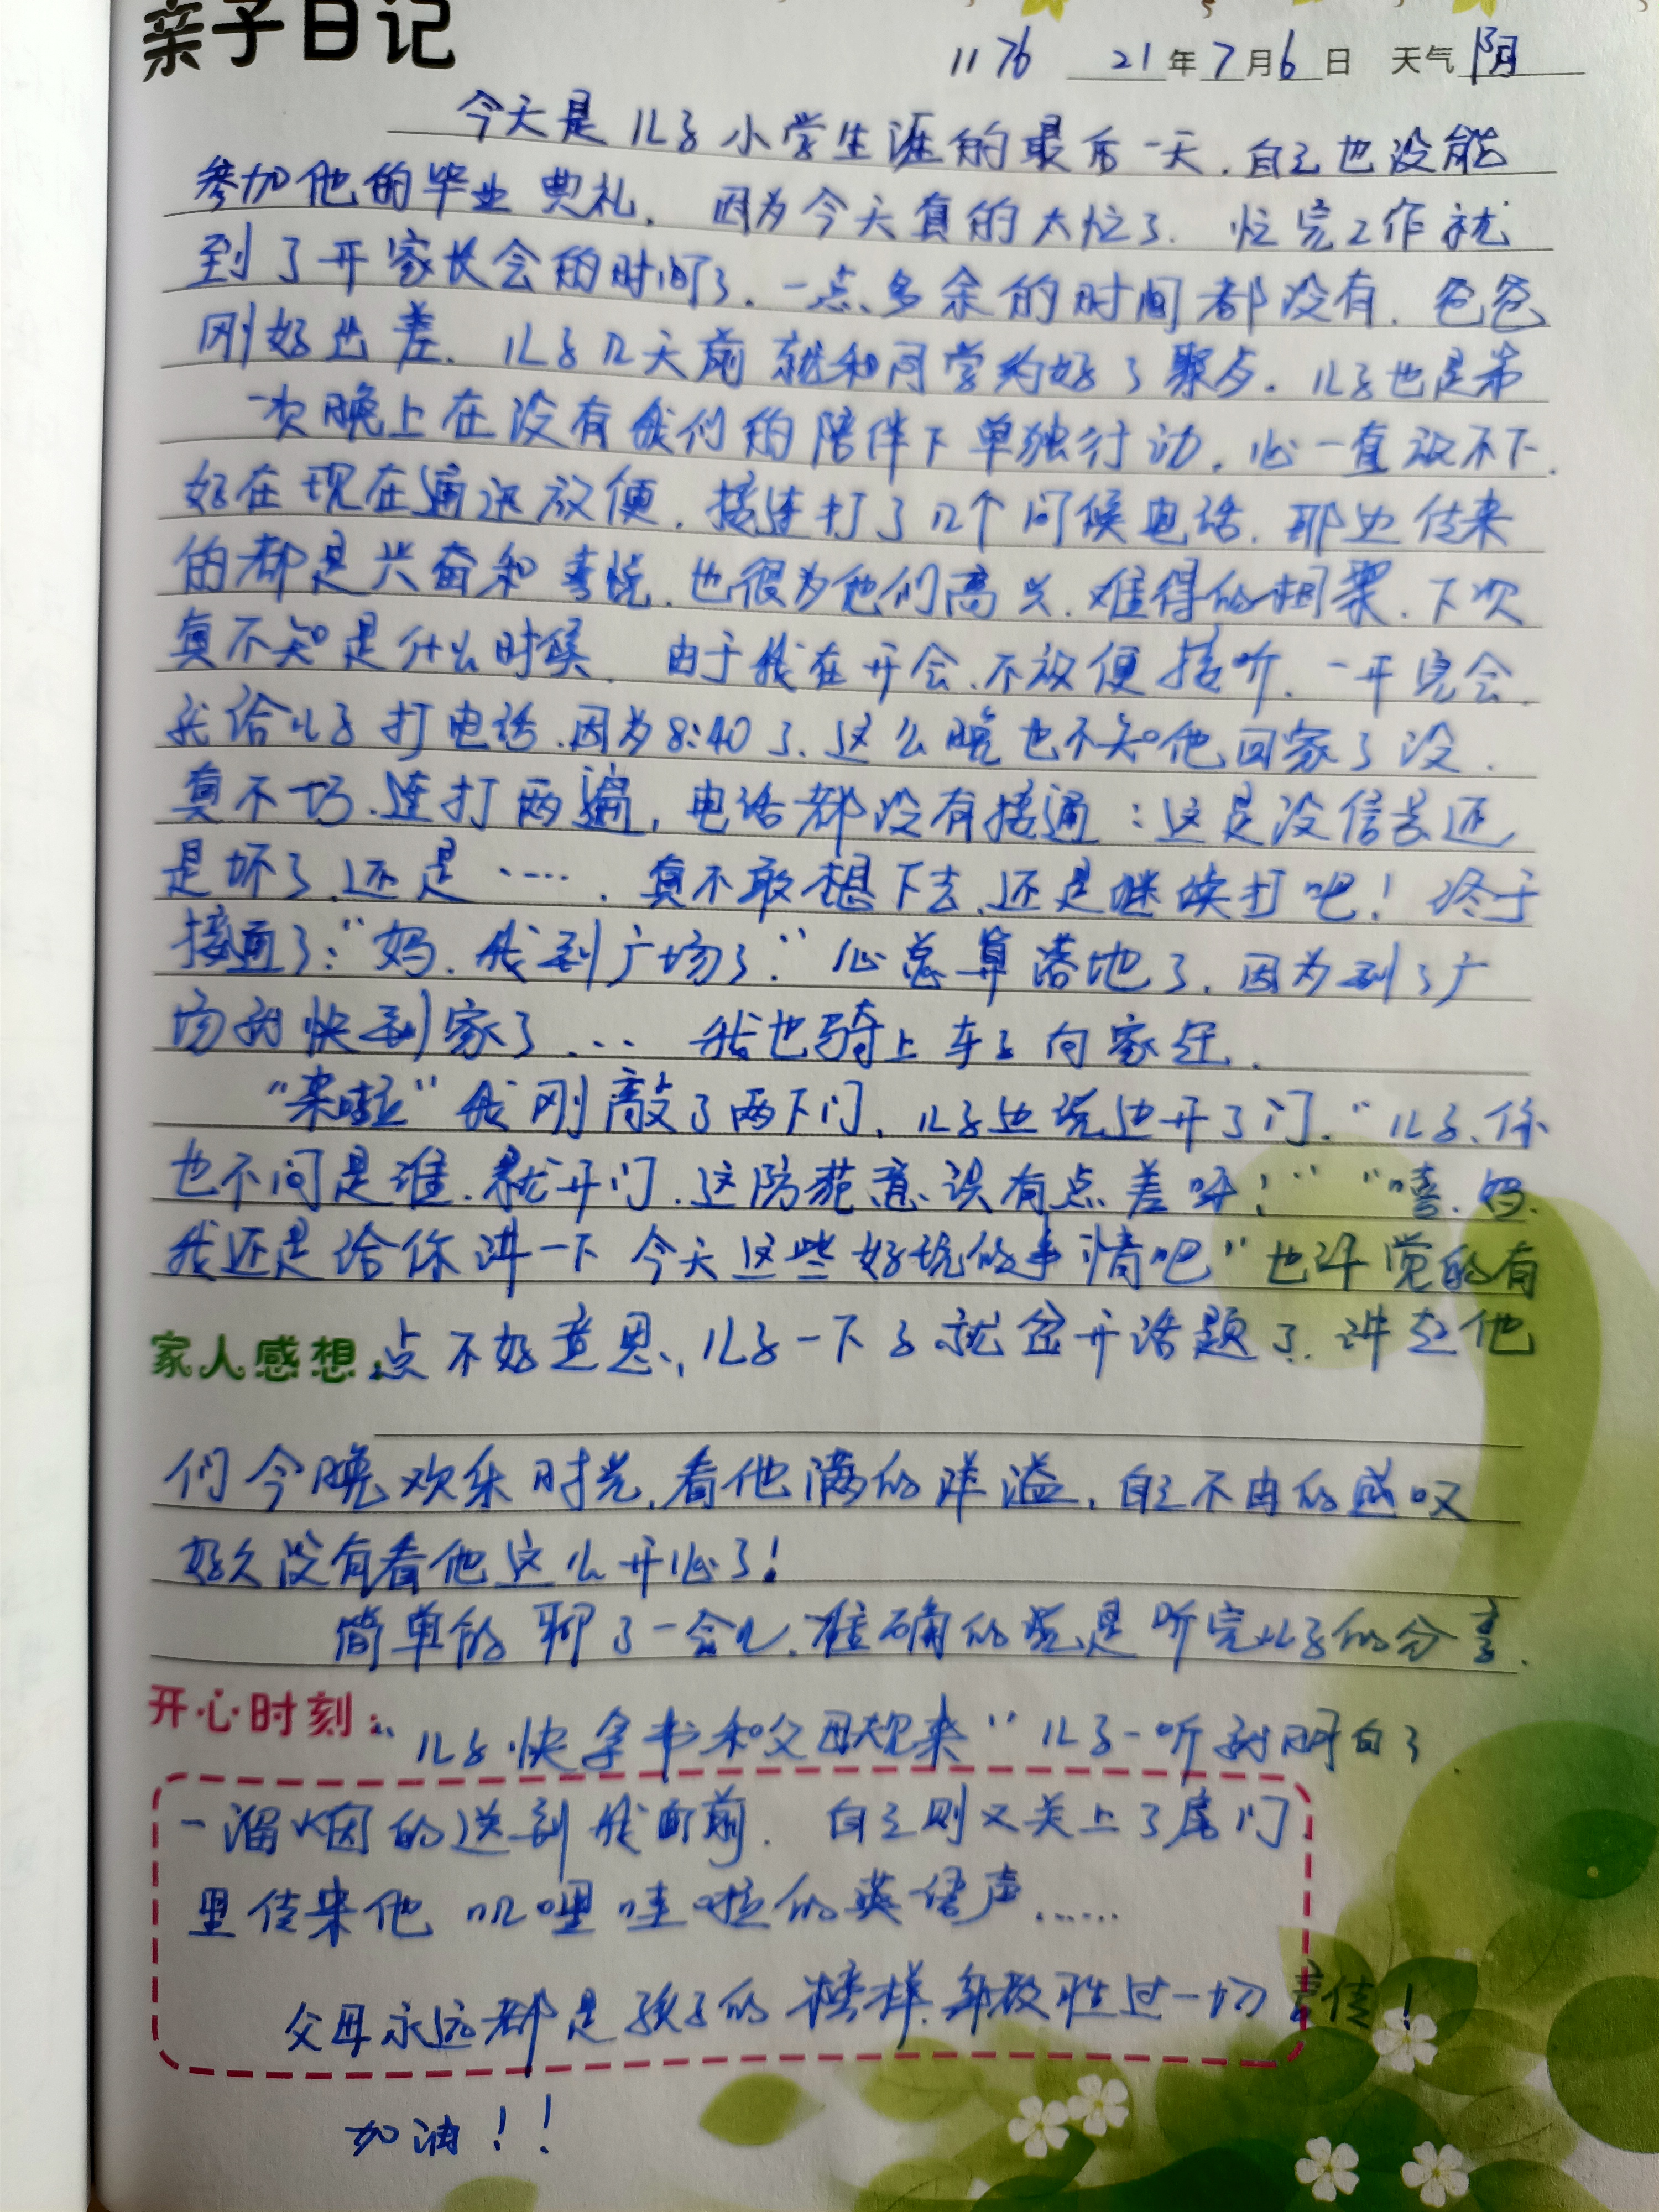 亲子日记
1176 21年7月6日 天气 阴
今天是儿子小学生涯的最后一天.自己也没能
参加他的毕业典礼.因为今天真的太忙了.忙完工作就
到了开家长会的时间了.一点多余的时间都没有.爸爸
刚好出差.儿子几天前就和同学约好了聚与.儿子也是第
一次晚上在没有我们的陪伴下单独行动.心一直放不下.
好在现在通迅放便.接连打了几个问候电话.那边传来
的都是兴奋和喜悦.也很为他们高兴.难得的相聚.下次
真不知是什么时候.由于我在开会.不放便接听.一开完会.
我给儿子打电话.因为8:40了.这么晚也不知他回家了没.
真不巧.连打两遍,电话都没有接通:这是没信号还
是坏了.还是…….真不敢想下去.还是继续打吧!终于
接通了:"妈.我到广场了."心总算落地了.因为到了广
场就快到家了…我也骑上车子向家赶.
"来啦"我刚敲了两下门.儿子边说边开了门."儿子.你
也不问是谁.就开门.这防范意识有点差呀!""嘻.妈.
我还是给你讲一下今天这些好玩的事情吧"也许觉的有
家人感想: 点不好意思,儿子一下子就岔开话题了.讲起他
们今晚欢乐时光.看他满的洋溢.自己不由的感叹
好久没有看他这么开心了!
简单的聊了一会儿.准确的说是听完儿子的分享.
开心时刻: "儿子.快拿书和父母规来"儿子一听就明白了
一溜烟的送到我面前.自己则又关上了房门
里传来他叽哩哇啦的英语声……
父母永远都是孩子的榜样.身教胜过一切言传!
加油!!